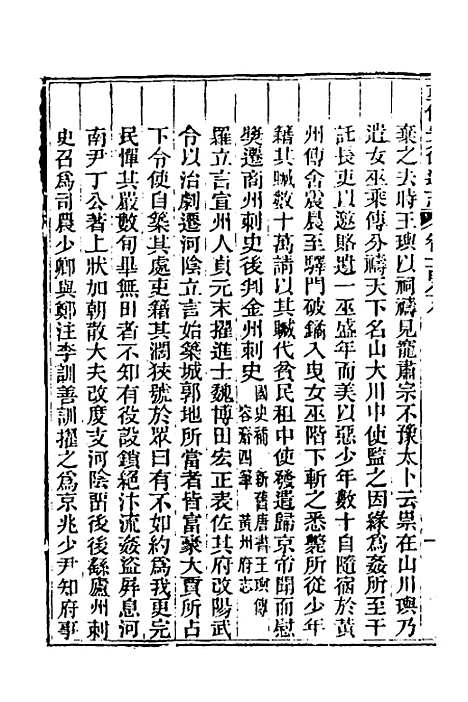 棄之夫時王璵以祠禱見寵肅宗不豫太卜云祟在山川璵乃
遣女巫乘傳分禱天下名山大川中使監之因緣為姦所至干
託長吏以邀賂遺一巫盛年而美以惡少年數十自隨宿於黃
州傳舍震晨至驛門破鐍入曳女巫階下斬之悉斃所從少年
籍其贓數十萬請以其贓代貧民租中使發遣歸京帝聞而慰
獎遷商州刺史後判金州刺史 國史補 新舊唐書王璵傳
容齋四筆 黃州府志
羅立言宣州人貞元末擢進士魏博田宏正表佐其府改陽武
令以治劇遷河陰立言始築城郭地所當者皆富豪大賈所占
下令使自築其處吏籍其濶狹號於眾曰有不如約為我更完
民憚其嚴數旬畢無田者不知有役設鎖絕汴流姦盜屏息河
南尹丁公著上狀加朝散大夫改度支河陰留後後繇廬州刺
史召為司農少卿與鄭注李訓善訓擢之為京兆少尹知府事